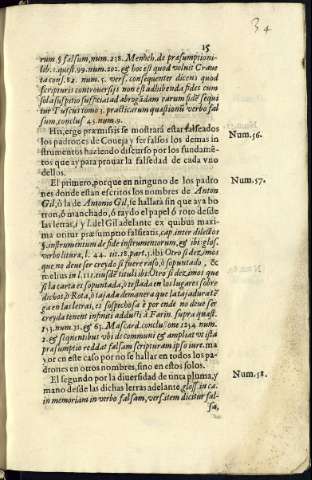 34
15
rum § falsum, num. 238. Menoch. de præsumptioni-
lib. 5. quest. 99. num. 202. & hoc est quod voluit Crave
ta cons. 82. num. 5. vers. consequenter dicens quod
scripturis controversijs non est adhibenda fides cum
sola suspitio sufficiat ad abrogãdam earum fidẽ sequi
tur Tuscus tomo 3. practicarum quæstionũ verbo fal
sum, conclus. 45. num. 9.
His, ergo præmissis se mostrarà estar falseados
los padrones de Coueja y ser falsos los demas in
strumentos haziendo discurso por los fundamẽ
tos que ay para prouar la falsedad de cada vno
dellos.
Num. 56.
El primero, porque en ninguno de los padro
nes donde estan escritos los nombres de Anton
Gil, ò la de Antonio Gil, se hallarà sin que aya bo
rron, ò manchado, ò raydo el papel ò roto desde
las letras, i y l, del Gil adelante ex quibus maxi
ma oritur præsumptio falsitatis, cap. inter dilectos
§. instrumentum de fide instrumentorum, & ibi glos.
verbo litura, l. 44. tit. 18. part. 3. ibi Otro si dezimos
que no deue ser creyda si fuere raso, ò sopuntado, &
melius in l. 111. eiusdẽ tituli ibi: Otro si dezimos que
si la carta es sopuntada, o testada en los lugares sobre
dichos, ò Rota, ò tajada de manera que la tajadura tẽ
ga en las letras, es sospechosa è por ende no deue ser
creyda tenent infinitos adducti à Farin. supra quæst.
153. num. 31. & 63. Mascard. conclusione 1254. num.
2. & sequentibus vbi de communi & ampliat vt ista
præsumptio reddat falsam scripturam ipso iure. ma
yor en este caso por no se hallar en todos los pa
drones en otros nombres, sino en estos solos.
Num. 57.
El segundo por la diuersidad de tinta pluma, y
mano desde las dichas letras adelante gloss. in ca.
in memoriam in verbo falsam, vers. item dicitur fal-
sa,
Num. 58.